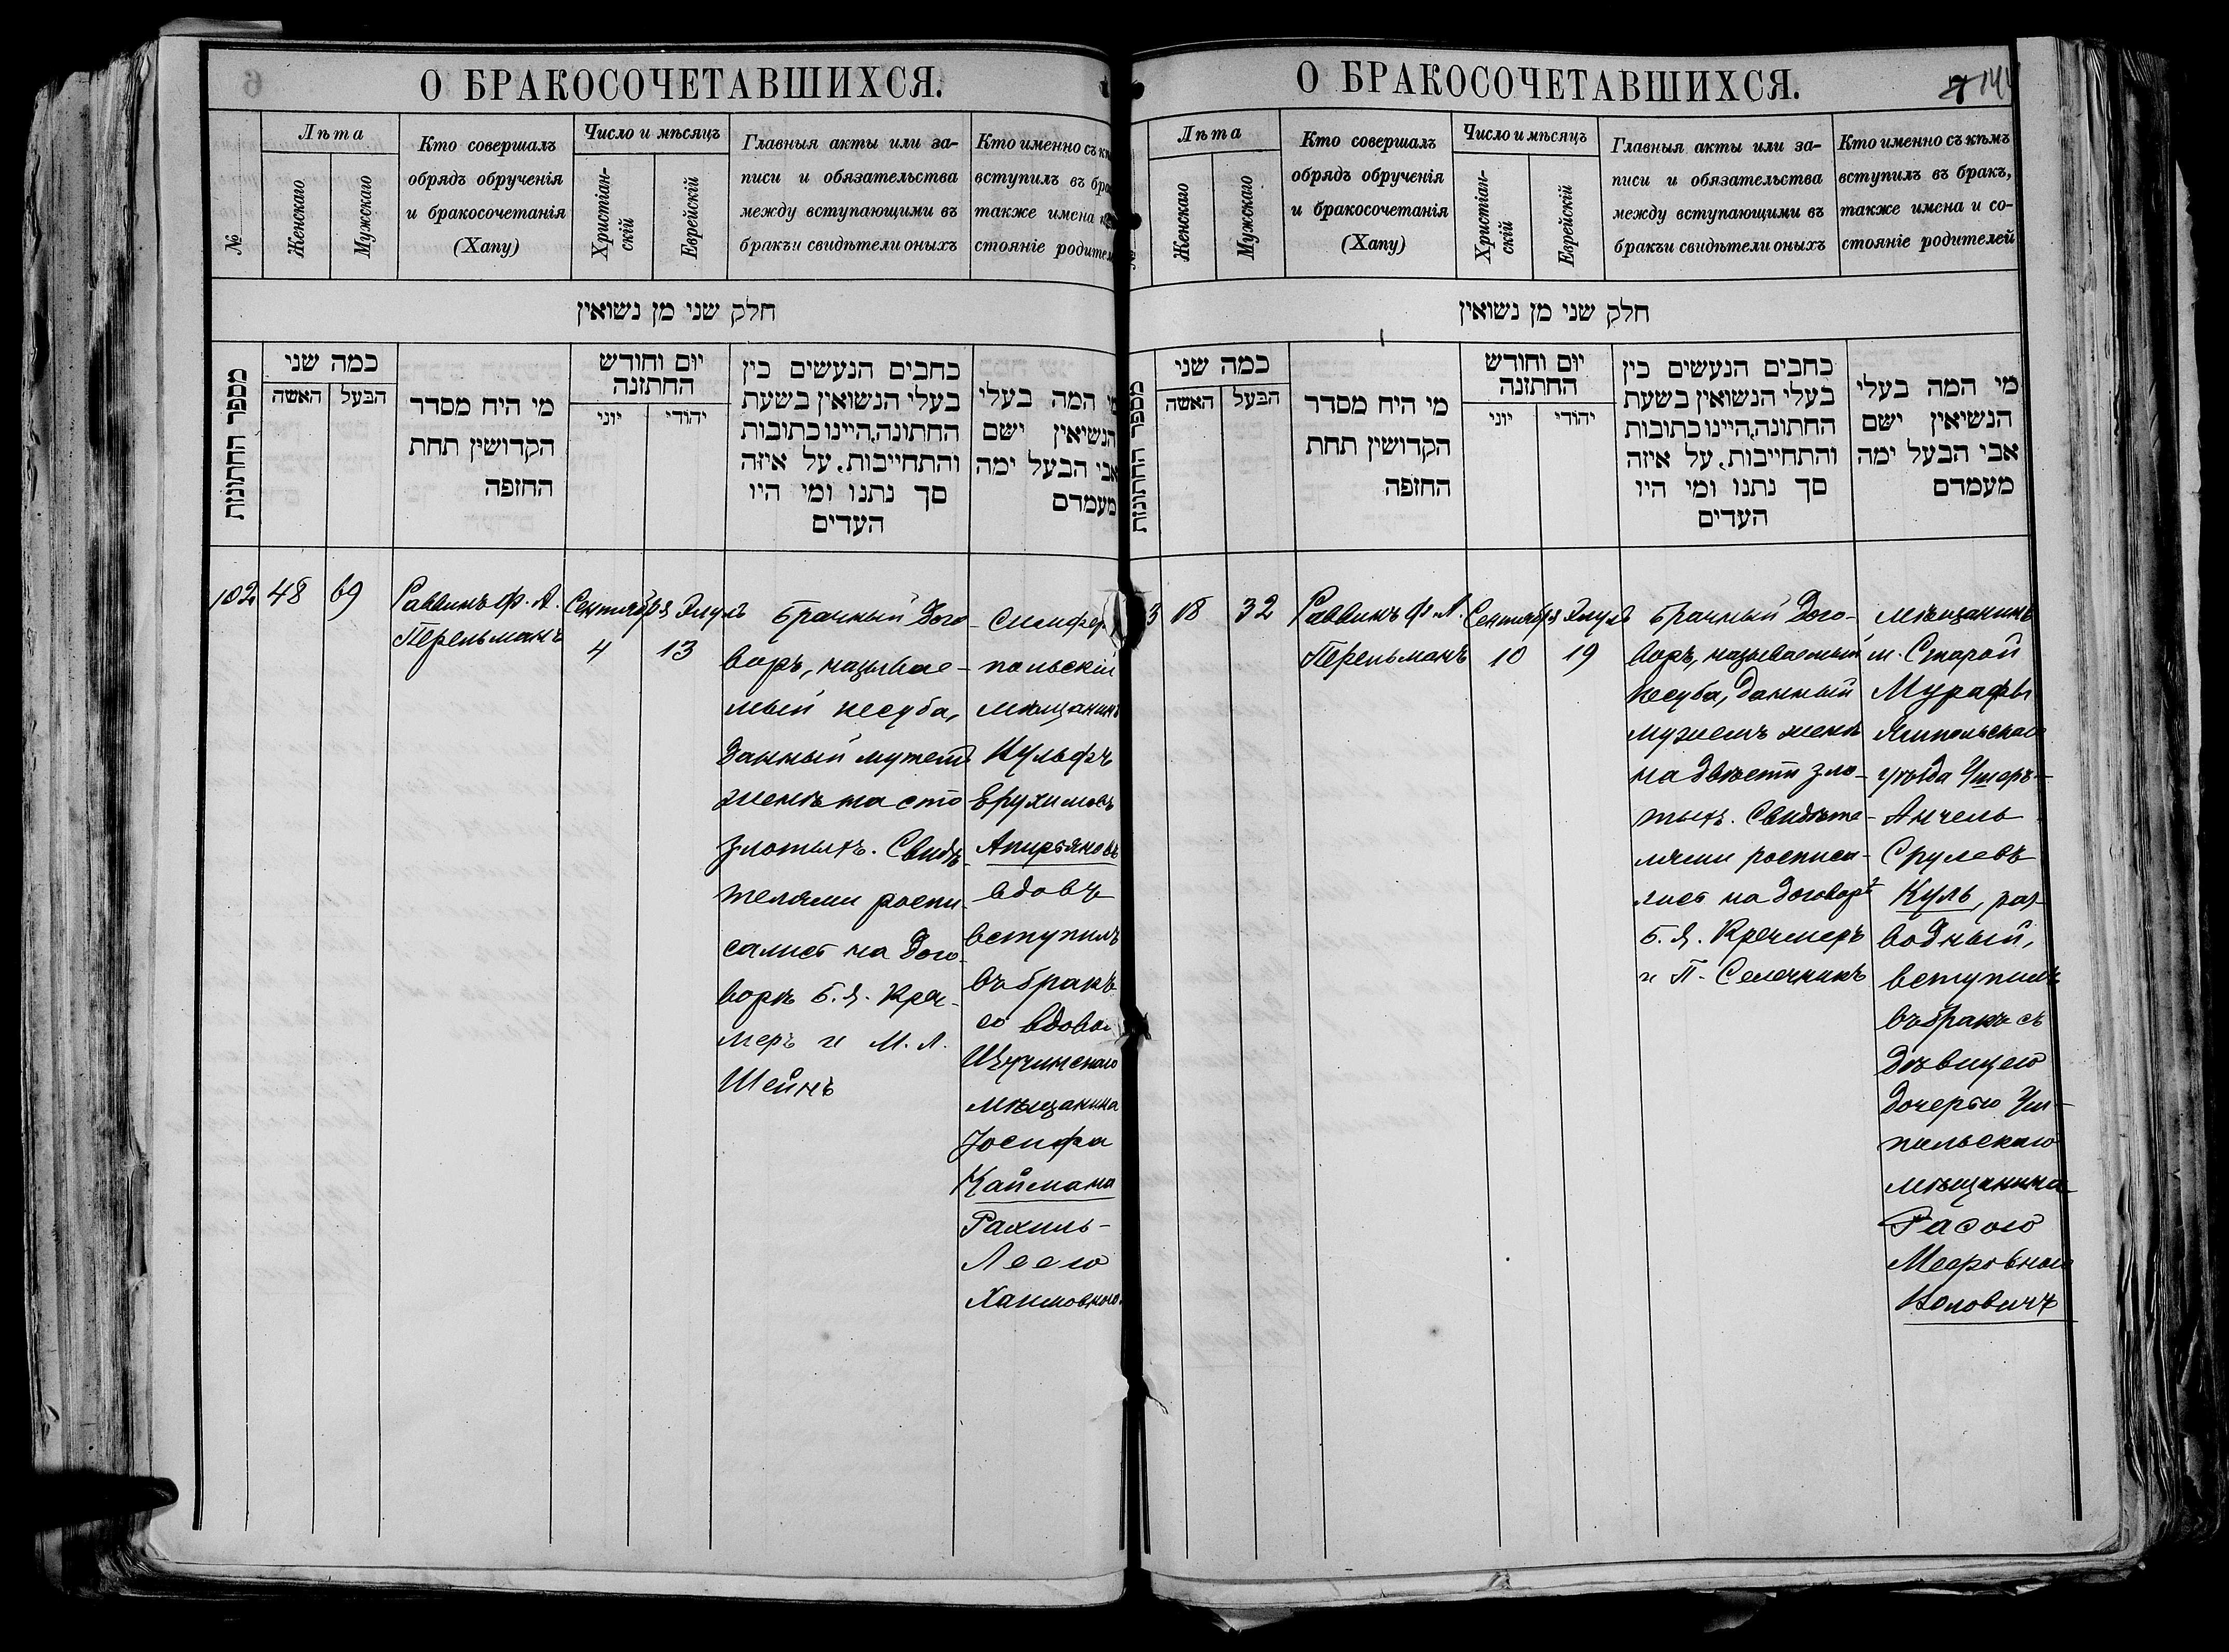 О БРАКОСОЧЕТАВШИХСЯ.
№
Лѣта
Женскаго
Мужскаго
Кто совершалъ
обрядъ обрученія
и бракосочетанія
(Хапу)
Число и мѣсяцъ
Христіан-
скій
Еврейскій
Главныя акты или за-
писи и обязательства
между вступающими въ
бракъи свидѣтели оныхъ
Кто именно съ
вступилъ въ
также имена
стояніе
חלק שני מן נשואין
מספר החתונות
כמה שני
האשה
הבעל
מי היח מסדר
הקדושין תחת
החופה
יום וחודש
החתונה
יוני
יהודי
כחבים הנעשים כין
בעלי הנשואין בשעת
החתונה,היינו כתובות
והתחייבות, על איזה
סך נתנו ומי היו
העדים
מי המה בעלי
הנשיאין ישם
אבי הבעל ימה
מעמדם
102
48
69
Раввинъ Ф. А.
Перельманъ
Сентября
4
Элулъ
13
Брачный дого-
воръ, называе-
мый кесуба,
данный мужемъ
женѣ на сто
злотыхъ. Свидѣ-
телями роспи-
сались на дого-
ворѣ Б. Я. Креч-
меръ и М. Л.
Шейнъ
Симфер
польскій
мѣщанинъ
Вульфъ
Ерухимовъ
Апирьяновъ
вдовъ
вступилъ
въ бракъ
со вдовой
Щучинскаго
мѣщанина
Іосифа
Каймана
Рахиль-
Леею
Хаимовною.
О БРАКОСОЧЕТАВШИХСЯ.
7
Лѣта
Женскаго
Мужскаго
Кто совершалъ
обрядъ обрученія
и бракосочетанія
(Хапу)
Число и мѣсяцъ
Христіан-
скій
Еврейскій
Главныя акты или за-
писи и обязательства
между вступающими въ
бракъи свидѣтели оныхъ
Кто именно съ кѣмъ
вступилъ въ бракъ,
также имена и со-
стояніе родителей
חלק שני מן נשואין
מספר החתונות
כמה שני
האשה
הבעל
מי היח מסדר
הקדושין תחת
החופה
יום וחודש
החתונה
יוני
יהודי
כחבים הנעשים כין
בעלי הנשואין בשעת
החתונה,היינו כתובות
והתחייבות, על איזה
סך נתנו ומי היו
העדים
מי המה בעלי
הנשיאין ישם
אבי הבעל ימה
מעמדם
3
18
32
Раввинъ Ф. А.
Перельманъ
Сентября
10
Элулъ
19
Брачный дого-
воръ, называемый
кесуба, данный
мужемъ женѣ
на двѣсти зло-
тыхъ. Свидѣте-
лями росписа-
лись на договорѣ
Б. Я. Кречмеръ
и П. Селечникъ
Мѣщанинъ
м. Старой
Мурафы
Ямпольскаго
уѣзда Ушеръ-
Анчель
Срулевъ
Куль, раз-
водный,
вступилъ
въ бракъ съ
дѣвицею
дочерью
польскаго
мѣщанина
Расою
Мееровною